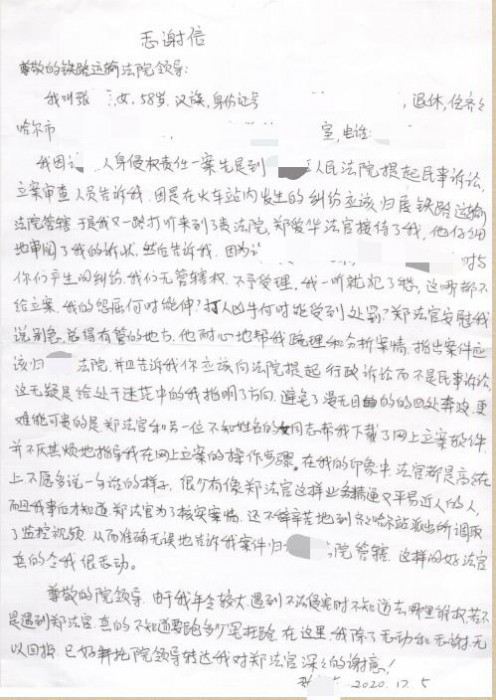 感谢信
尊敬的铁路运输法院领导:
我叫张 女,58岁,汉族,身份证号 ,退休,住齐齐
哈尔市 室,电话:
我因 人身侵权责任一案先是到 人民法院提起民事诉讼,
立案审查人员告诉我,因是在火车站内发生的纠纷应该归属铁路运输
法院管辖,于是我又一路打听来到了贵法院,郑爱华法官接待了我,他仔细
地审阅了我的诉状,然后告诉我,因为 时与
你们产生的纠纷,我们无管辖权,不予受理,我一听就犯了愁,这哪都不
给立案,我的怨屈何时能伸?打人凶手何时能受到处罚?郑法官安慰我
说别急,总得有管的地方,他耐心地帮我梳理和分析案情,指出案件应
该归 法院,并且告诉我你应该向法院提起行政诉讼而不是民事诉讼,
这无疑是给处于迷茫中的我指明了方向,避免了漫无目的的四处奔波,更
难能可贵的是郑法官和另一位不知姓名的女同志帮我下载了网上立案软件,
并不厌其烦地指导我在网上立案的操作步骤。在我的印象中,法官都是高高在
上不愿多说一句话的样子,很少有像郑法官这样业务精通又平易近人的人,
而且我事后才知道郑法官为了核实案情,还不辞辛苦地到齐齐哈尔站派出所调取
了监控视频,从而准确无误地告诉我案件归 法院管辖,这样的好法官
真的令我很感动。
尊敬的院领导,由于我年令较大,遇到不法侵害时不知道去哪里维权,若不
是遇到郑法官,真的不知道要跑多少冤枉路,在这里,我除了感动和感谢,无
以回报,只好拜托院领导转达我对郑法官深深的谢意!
张 2020.17.5